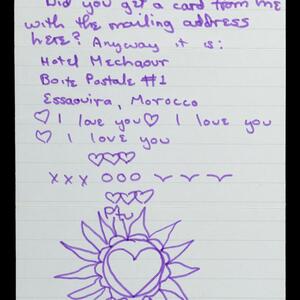 Did you get a card from me
with the mailing address
here? Anyway it is:
Hotel Mechaour
Boite Postale #1
Essaouira, Morocco
♡ I love you ♡ I love you
♡ I love you
♡♡♡
x x x O O O
♡♡♡